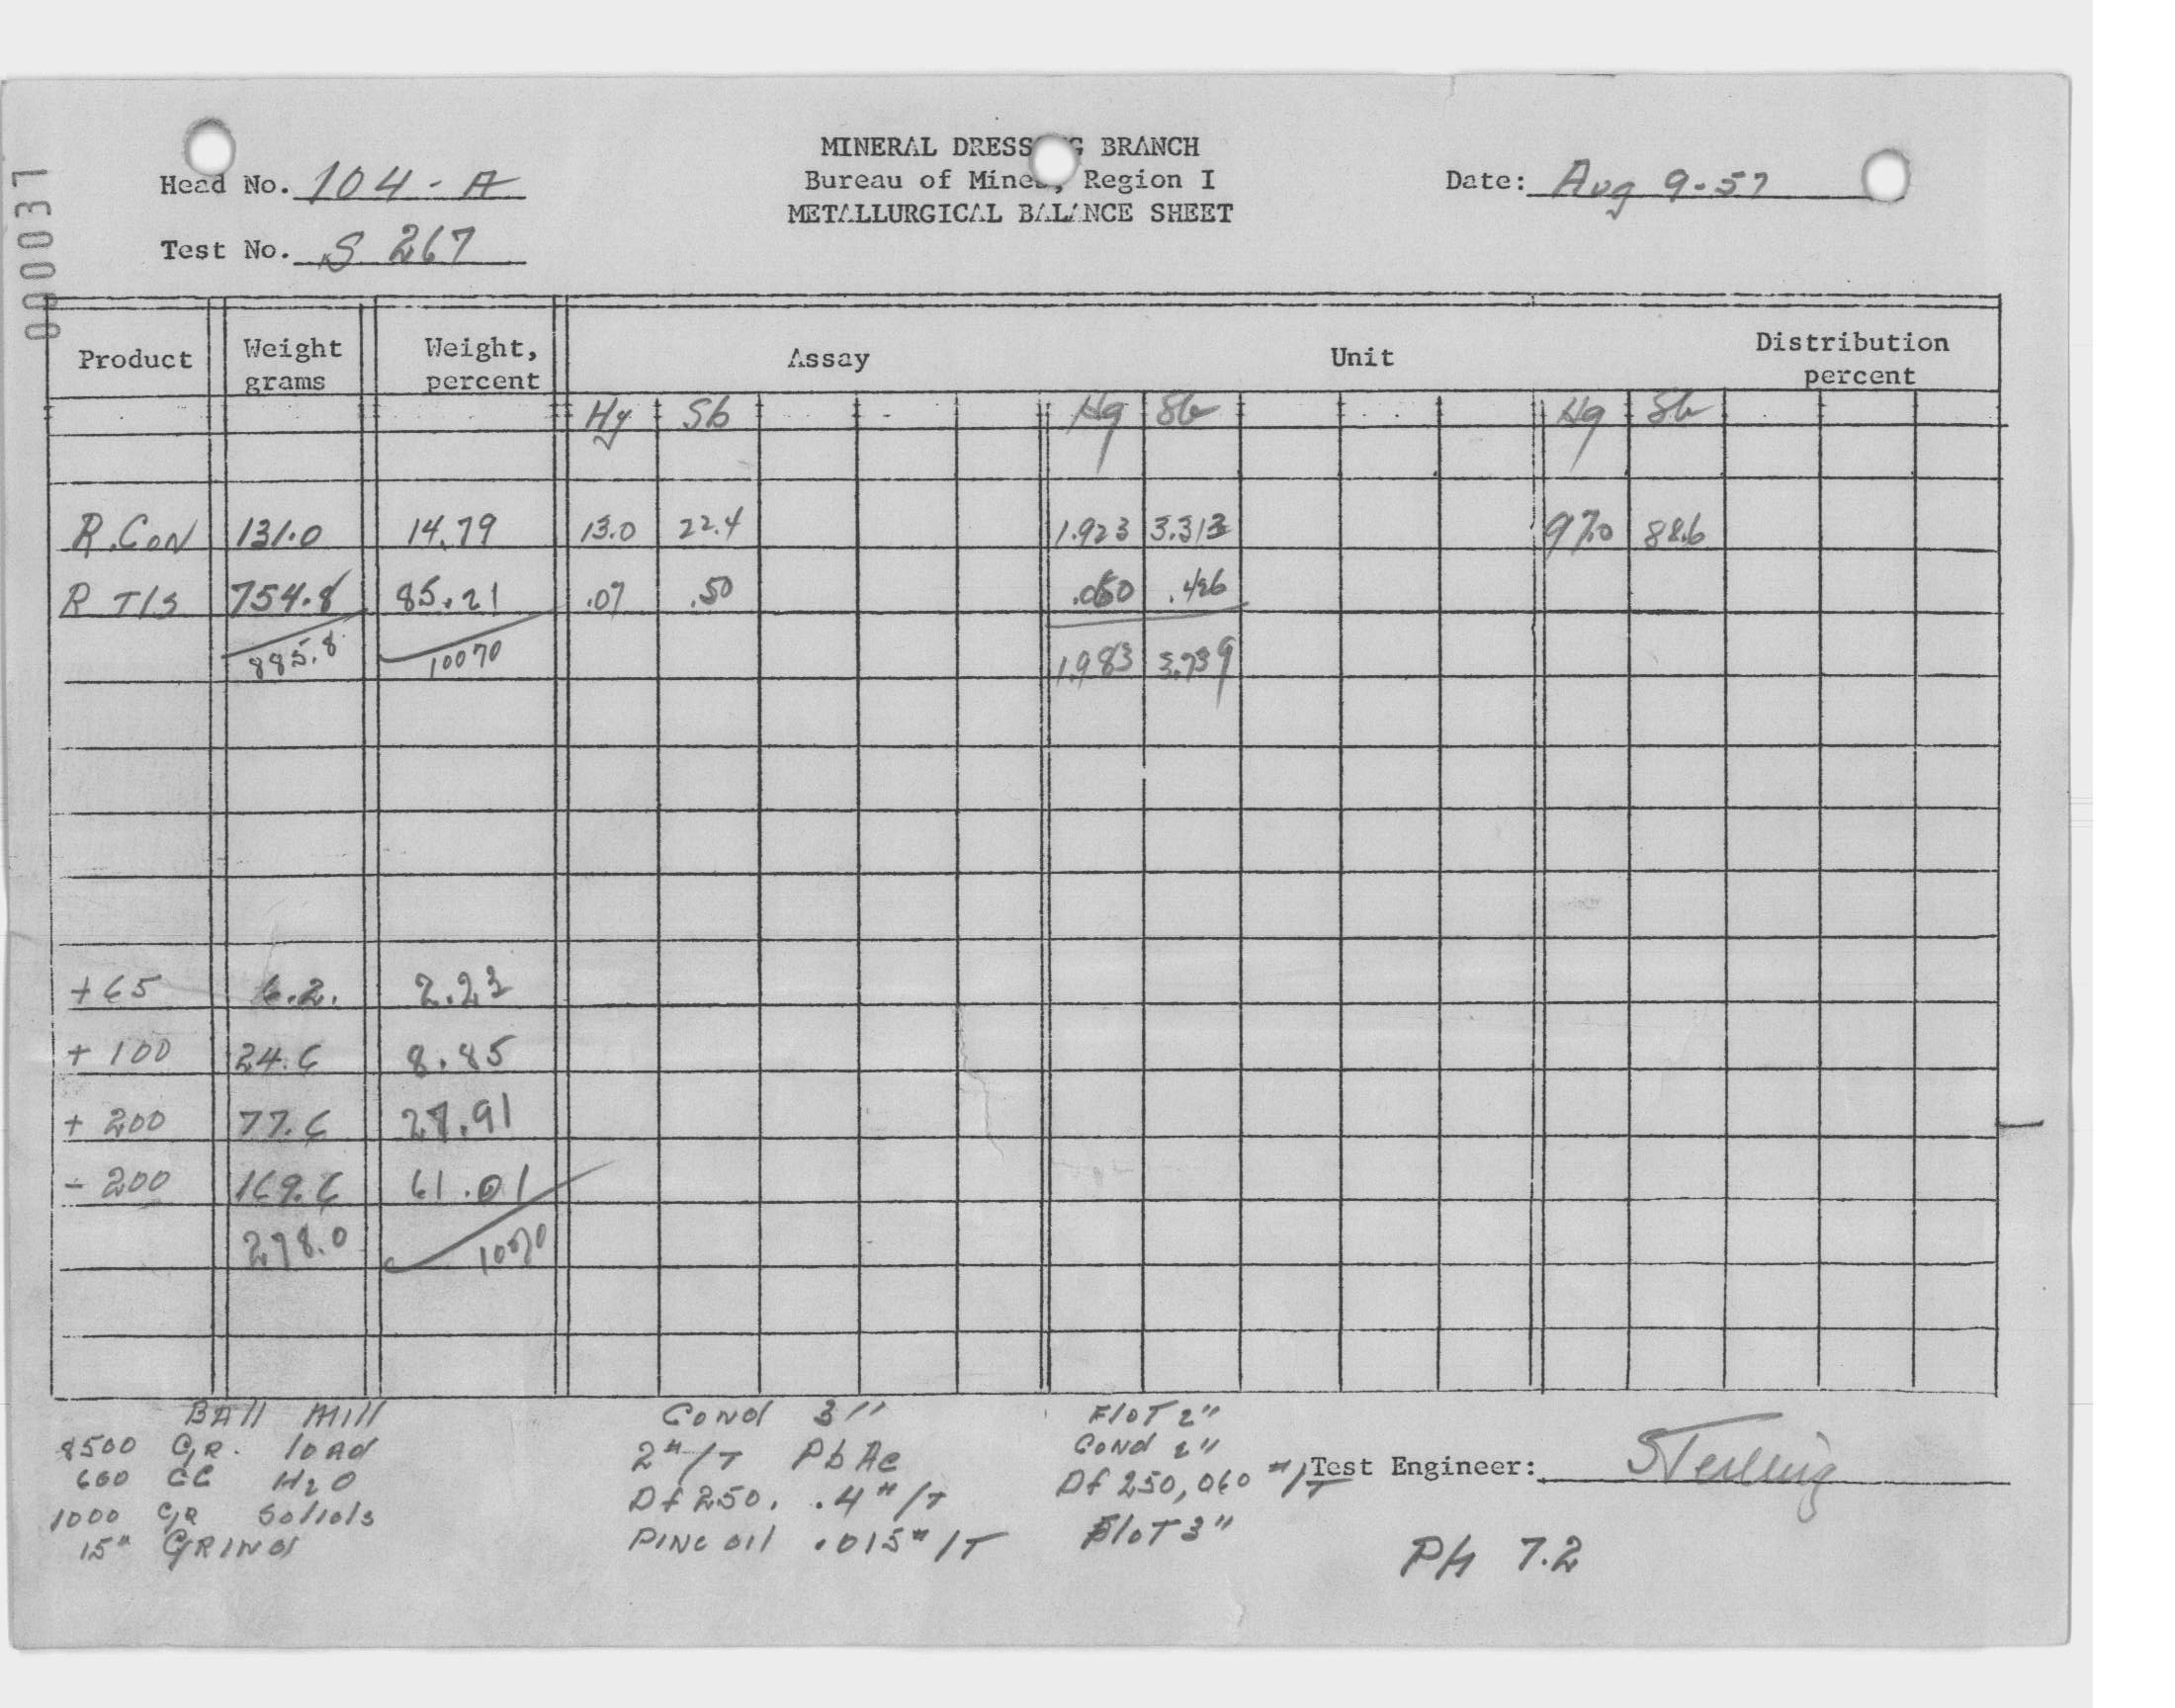 000037
MINERAL DRESS G BRANCH
Head No. 104-A Bureau of Mines, Region I Date: Aug 9-57
METALLURGICAL BALANCE SHEET
Test No. S 267
Product Weight grams Weight, percent Assay Unit Distribution percent
Hg Sb Hg Sb Hg Sb
R.CoN 131.0 14.79 13.0 22.4 1.923 3.313 97.0 88.6
R T/s 754.8 85.21 .07 .50 .060 .426
885.8 100% 1.983 3.739
+65 6.2. 2.23
+ 100 24.6 8.85
+ 200 77.6 27.91
- 200 169.6 61.01
278.0 100%
BAll Mill Cond 3" FloT 2"
8500 GR. loAd 2#/T PbAc Cond 2"
600 CC H2O Df 250. .4#/T Df 250, 060 #/T Test Engineer: STerling
1000 GR Solids Pine oil .015#/T FloT 3"
15" GRINd PH 7.2